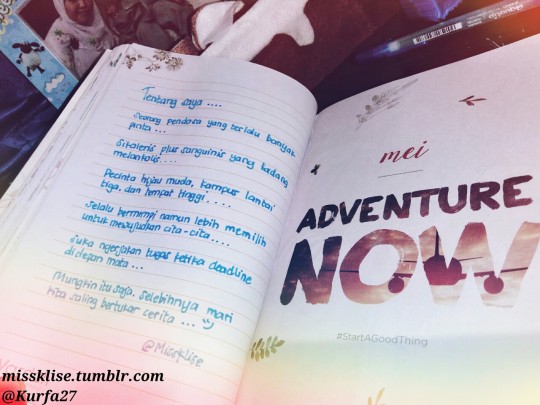 Tentang saya ....
Seorang pendosa yang terlalu banyak
pinta ...
Sikoleris plus sanguinis yang kadang
melankolis ...
Pecinta hijau muda, kampus lantai
tiga, dan tempat tinggi ....
Selalu bermimpi namun lebih memilih
untuk mewujudkan cita-cita ....
Suka ngerjakan tugas ketika deadline
di depan mata ...
Mungkin itu saja, selebihnya mari
kita saling bertukar cerita ...
@Missklise
mei
ADVENTURE
NOW
#StartAGoodThing
missklise.tumblr.com
@Kurfa27